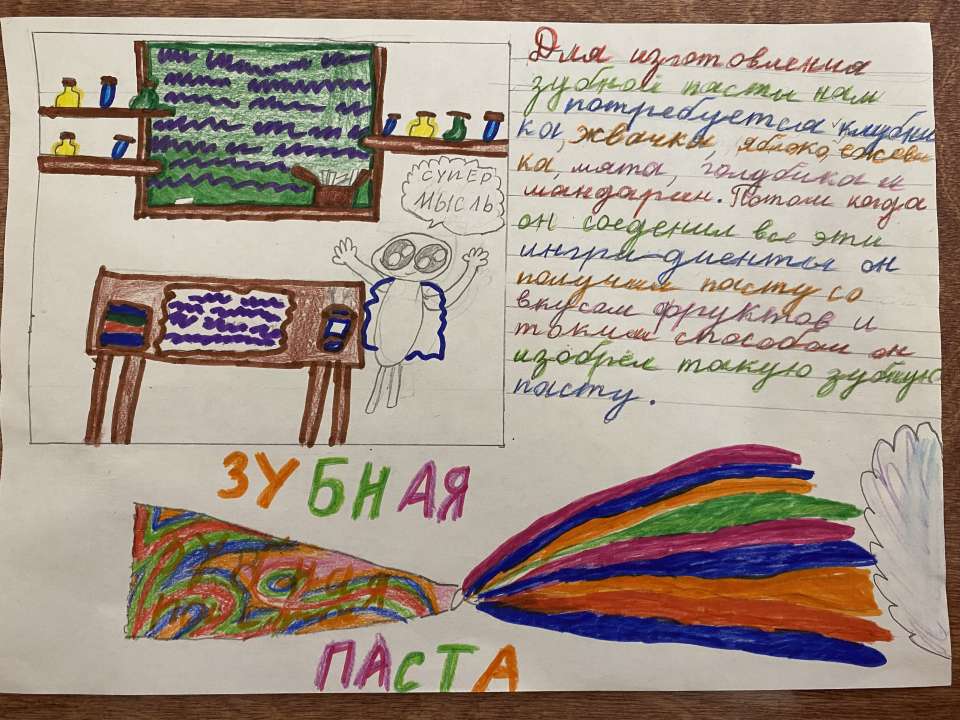 СУПЕР
МЫСЛЬ
Для изготовления
зубной пасты нам
потребуется клубни
ка, жвачка, яблоко, ежеви
ка, мята, голубика и
мандарин. Потом когда
он соеденил все эти
ингри-диенты он
получил пасту со
вкусом фруктов и
таким способом он
изобрёл такую зубную
пасту.
ЗУБНАЯ
зубная
паста
ПАСТА